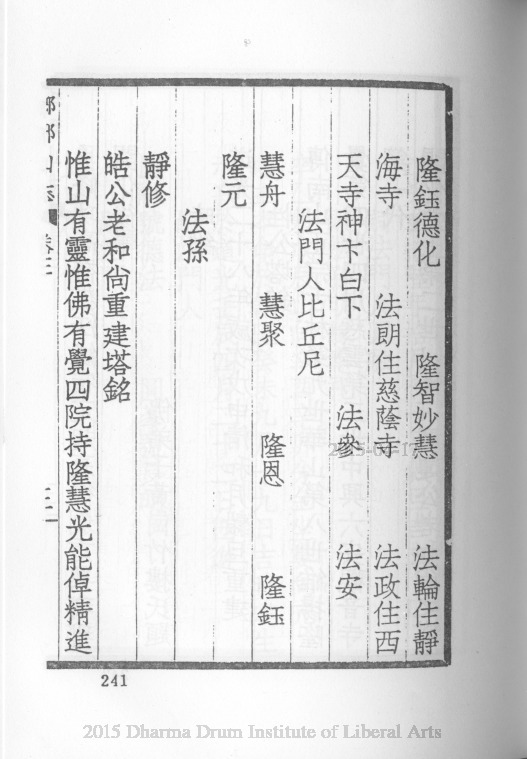 隆鈺德化　隆智妙慧　法輪住靜
海寺　法朗住慈蔭寺　法政住西
天寺神卞白下　法參　法安
法門人比丘尼
慧舟　慧聚　隆恩　隆鈺
隆元
法孫
靜修
皓公老和尚重建塔銘
惟山有靈惟佛有覺四院持隆慧光能倬精進
241
2015 Dharma Drum Institute of Liberal Arts